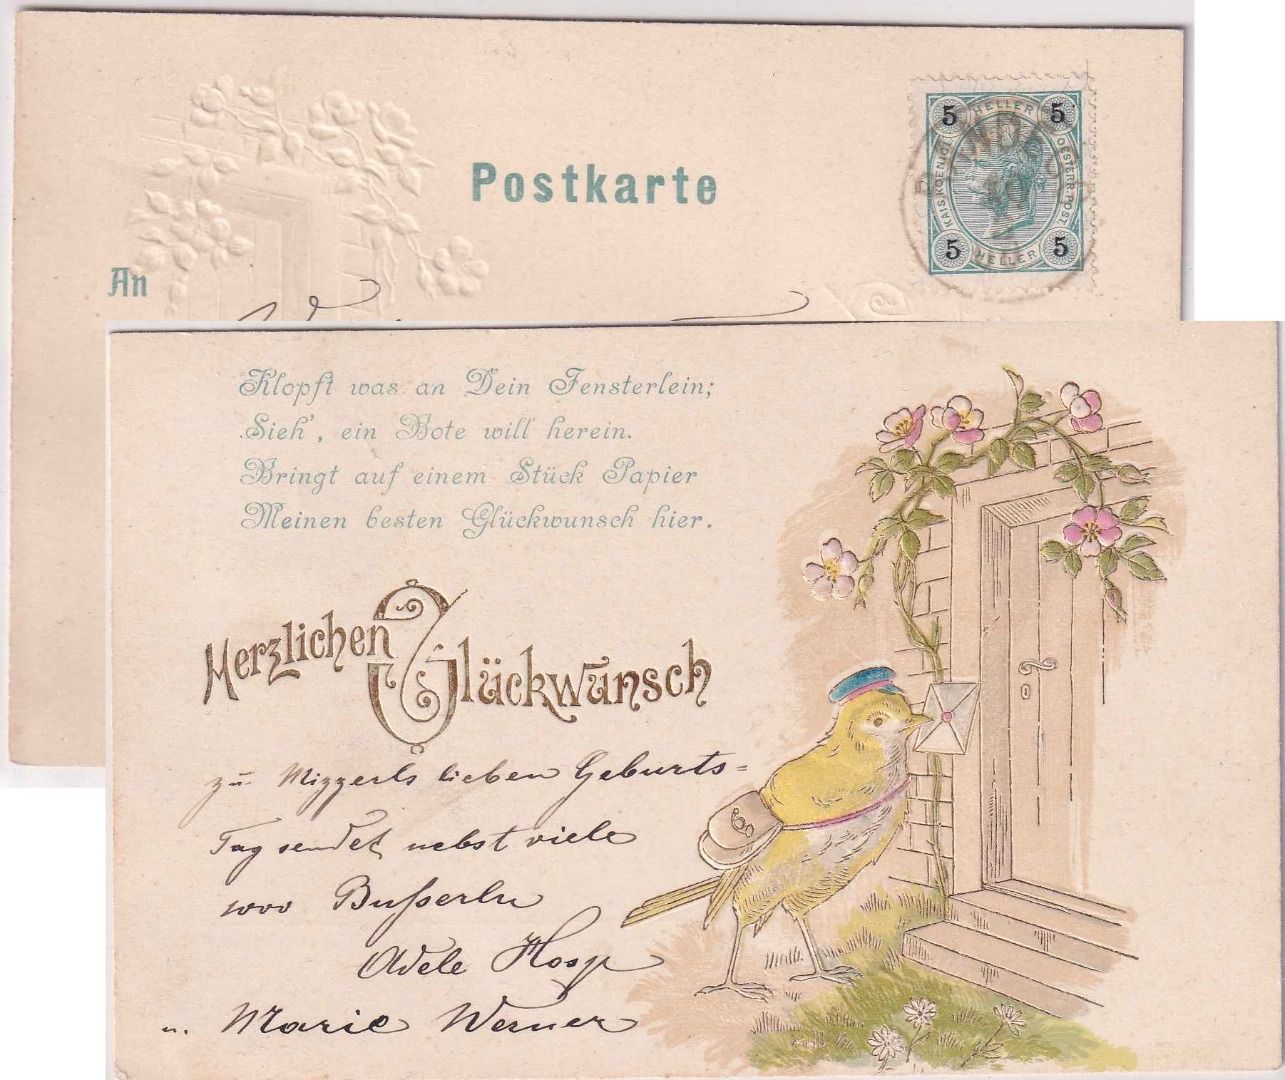 Postkarte
An
5 HELLER 5
KAIS. KOENIGL. OESTERR. POST.
5 HELLER 5
Klopft was an Dein Fensterlein;
Sieh', ein Bote will herein.
Bringt auf einem Stück Papier
Meinen besten Glückwunsch hier.
Herzlichen Glückwunsch
zu Miggerls lieben Geburts=
Tag sendet nebst viele
1000 Busserln
Adele Hosp
u. Marie Werner